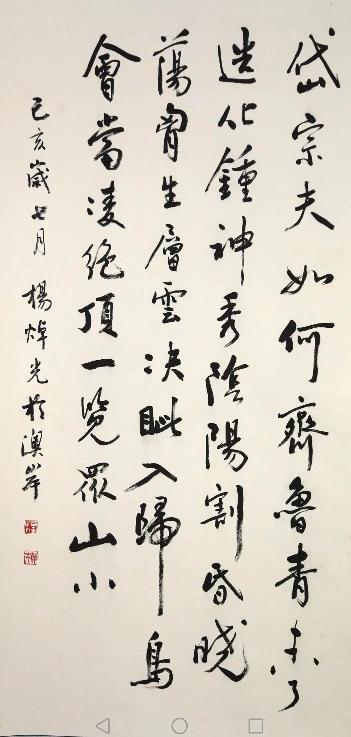 岱宗夫如何齊魯青未了
造化鍾神秀陰陽割昏曉
蕩胷生層雲決眦入歸鳥
會當凌絕頂一覽眾山小
己亥歲七月楊焯光於澳岸